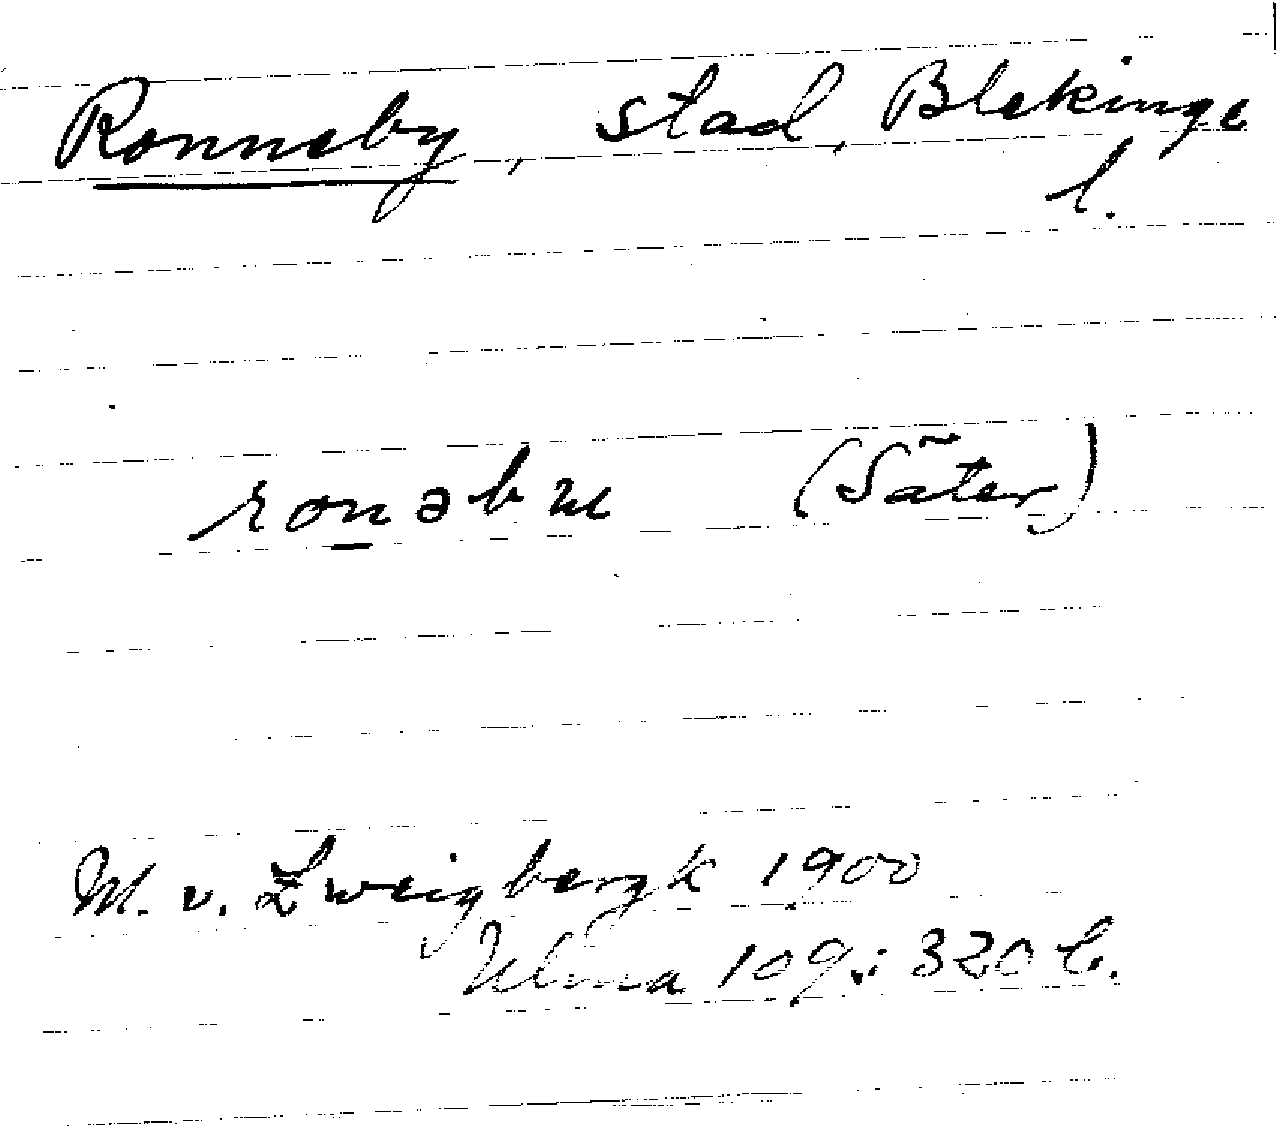 Ronneby, stad, Blekinge
l.
ronəbɯ (Säter)
M. v. Zweigbergk 1900
Ulma 109: 320 b.